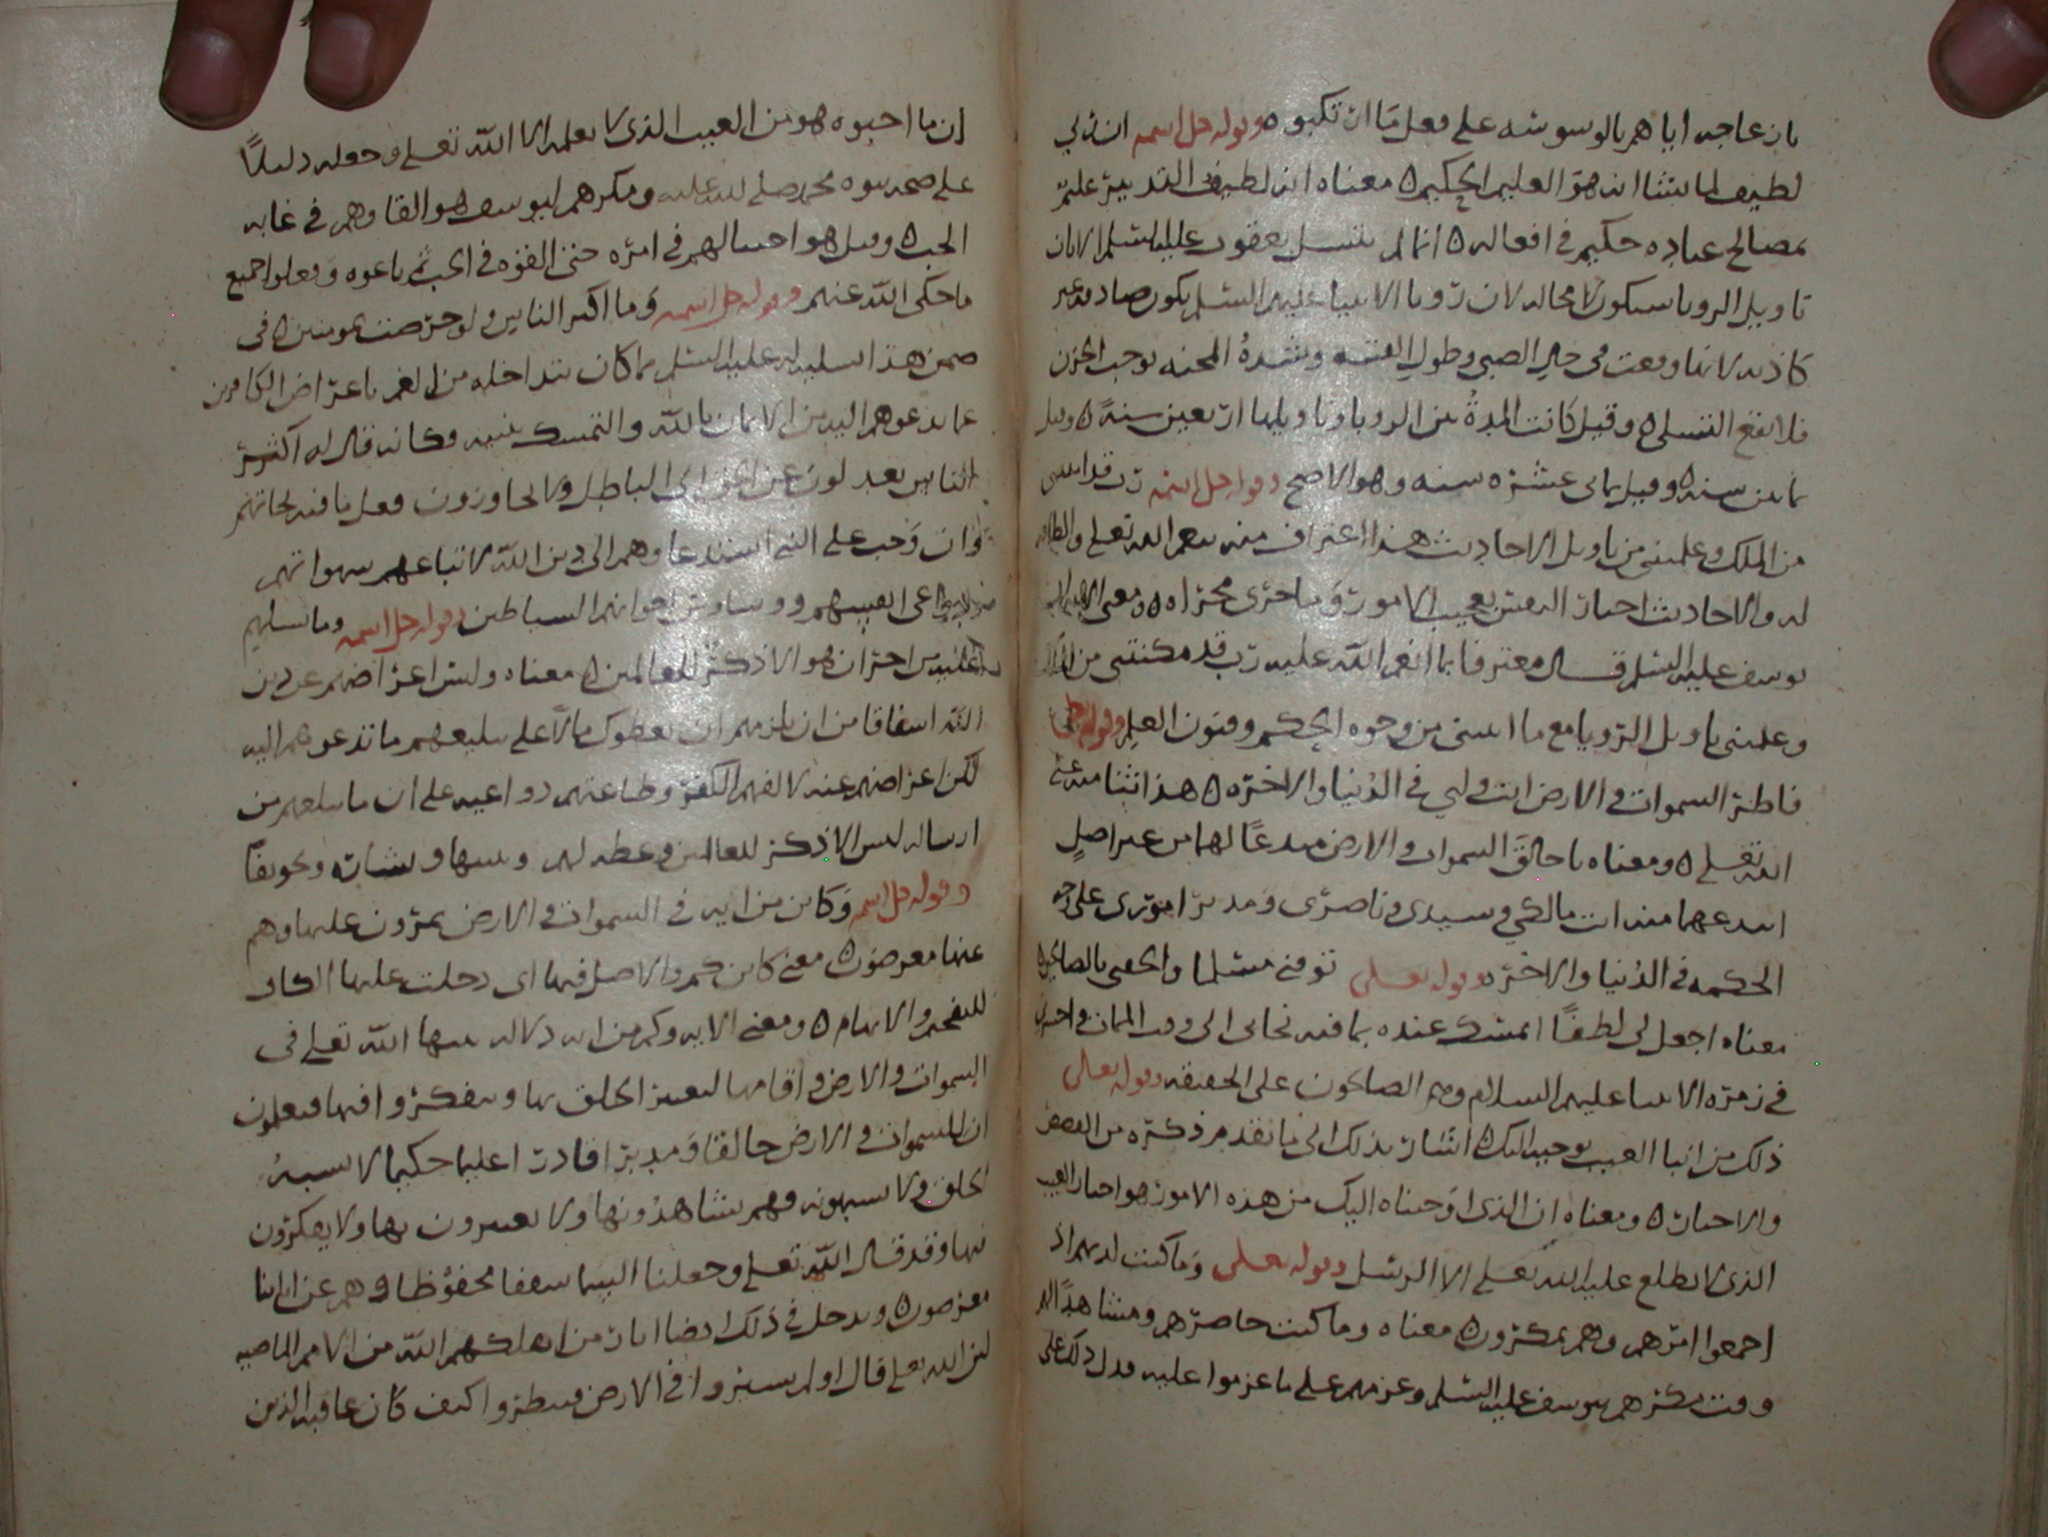 بازعاجه اياهم بالوسوسه على فعل ما ارتكبوه وقوله جل اسمه ان ربي
لطيف لما يشا انه هو العليم الحكيم ٥ معناه انه لطيف التدبير عليم
بمصالح عباده حكيم في افعاله ٥ انما لم يتسل يعقوب عليه السلم لان
تاويل الرويا سيكون لا محاله لان رويا الانبيا عليهم السلم يكون صادقه غير
كاذبه لانها وقعت في حال الصبي وطول الغيبه وشدة المحنه يوجب الحزن
فلا يقع التسلي ٥ وقيل كانت المدة بين الرويا وتاويلها اربعين سنة ٥ وقيل
ثمانين سنه ٥ وقيل ثماني عشره سنه وهو الاصح وقوله جل اسمه رب قد اتيتني
من الملك وعلمتني من تاويل الاحاديث هذا اعتراف منه بنعم الله تعلى والطافه
له والاحاديث اخبار المعتبر بعجيب الامور وما جرى مجراه ٥ ومعنى الايه ان
يوسف عليه السلم قال معترفا بما انعم الله عليه رب قد مكنتني من الملك
وعلمتني تاويل الرويا مع ما اتيتني من وجوه الحكم وفنون العلم وقوله تعلى
فاطر السموات والارض انت ولي في الدنيا والاخره ٥ هذا ثنا منه على
الله تعلى ٥ ومعناه يا خالق السموات والارض مبدعا لهما من غير اصل
ابدعهما منه انت مالكي وسيدي وناصري ومدبر اموري على وجه
الحكمه في الدنيا والاخره وقوله تعلى توفني مسلما والحقني بالصالحين ٥
معناه اجعل لي لطفا اتمسك عنده بما فيه نجاتي الى وقت الممات واحشرني
في زمره الانبيا عليهم السلام وهم الصالحون على الحقيقه وقوله تعالى
ذلك من انبا الغيب نوحيه اليك ٥ اشار بذلك الى ما تقدم ذكره من القصص
والاخبار ٥ ومعناه ان الذي اوحيناه اليك من هذه الامور هو اخبار الغيب
الذي لا يطلع عليه الله تعلى الا الرسل وقوله تعلى وما كنت لديهم اذ
اجمعوا امرهم وهم يمكرون ٥ معناه وما كنت حاضرهم ومشاهدا لهم
وقت مكرهم بيوسف عليه السلم وعزمهم على ما عزموا عليه فدل ذلك على
ان ما اخبروه هو من الغيب الذي لا يعلمه الا الله تعلى وجعله دليلا
على صحه نبوه محمد صلى الله عليه ومكرهم ليوسف هو القاوهم في غيابه
الجب ٥ وقيل هو احتيالهم في امره حتى القوه في الجب ثم باعوه وفعلوا جميع
ما حكى الله عنهم وقوله جل اسمه وما اكثر الناس ولو حرصت بمومنين ٥ في
ضمن هذا تسليه له عليه السلم بما كان يتداخله من الغم باعراض الكافرين
عما يدعوهم اليه من الايمان بالله والتمسك بنبيه وكانه قال له اكثر
الناس يعدلون عن الحق الى الباطل ولا يحاولون فعل ما فيه نجاتهم
وان وجب على النبي استدعاوهم الى دين الله لاتباعهم شهواتهم
دواعي انفسهم ووساوس اخوانهم الشياطين وقوله جل اسمه وما تسلهم
عليه من اجر ان هو الا ذكر للعالمين ٥ معناه وليس اعراضهم عن دين
الله اشفاقا من ان يلزمهم ان يعطوك مالا على تبليغهم ما تدعوهم اليه
لكن اعراضهم عنه لالفهم الكفر وطاعتهم دواعيه على ان ما تبلغهم من
ارساله ليس الا ذكر للعالمين وعظه لهم وتنبيها وبشاره وتخويفا
وقوله جل اسمه وكاين من ايه في السموات والارض يمرون عليها وهم
عنها معرضون ٥ معنى كاين كم والاصل فيها اي دخلت عليها الكاف
للتفخيم والابهام ٥ ومعنى الايه وكم من ايه ودلاله بينها الله تعلى في
السموات والارض واقامها ليعتبر الخلق بها ويتفكروا فيها فيعلمون
ان للسموات والارض خالقا ومدبرا قادرا عليما حكيما لا يشبه
الخلق ولا يشبهونه فهم يشاهدونها ولا يعتبرون بها ولا يفكرون
فيها وقد قال الله تعلى وجعلنا السما سقفا محفوظا وهم عن اياتنا
معرضون ٥ ويدخل في ذلك ايضا اثار من اهلكهم الله من الامم الماضيه
لان الله تعلى قال اولم يسيروا في الارض فينظروا كيف كان عاقبه الذين